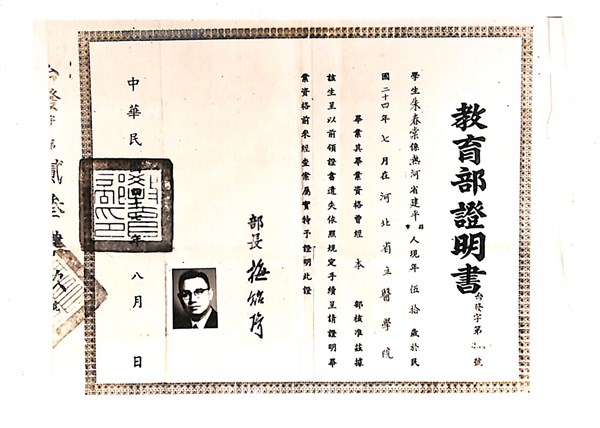 教育部證明書
台發字第 號
學生朱春棠係熱河省建平縣市人現年伍拾歲於民
國二十四年七月在河北省立醫學院
畢業其畢業資格曾經 本 部核准茲據
該生呈以前領證書遺失依照規定手續呈請證明畢
業資格前來經查案屬實特予證明此證
部長 梅貽琦
中華民國四十七年八月 日
發字第貳叁